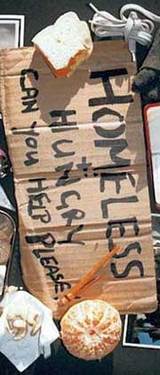 HOMELESS
+ HUNGRY
CAN YOU HELP PLEASE!